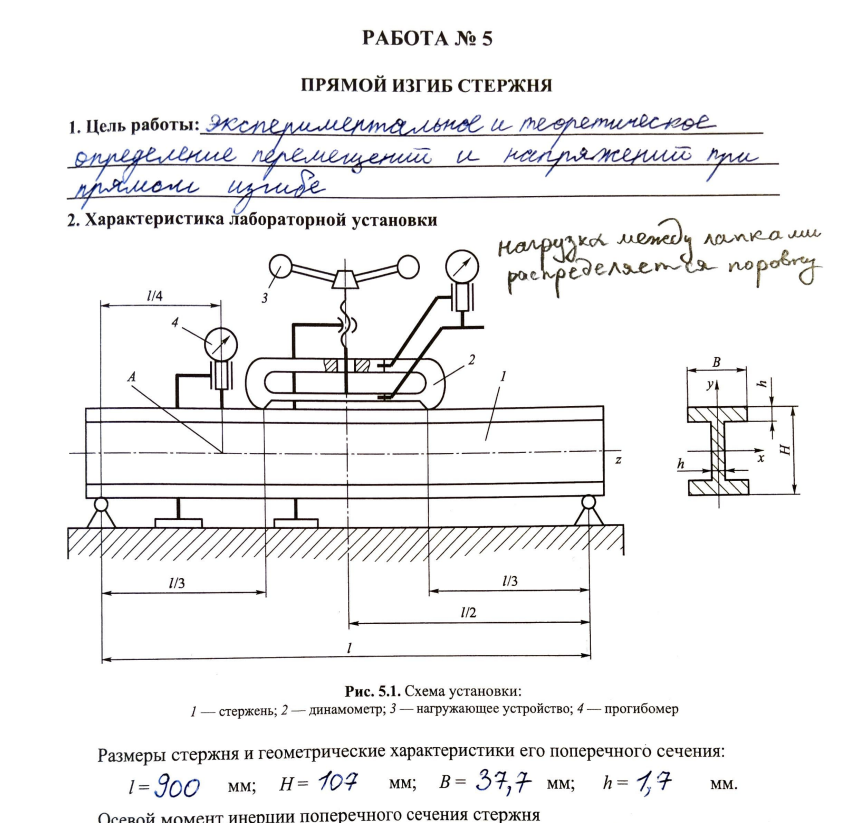 РАБОТА № 5
ПРЯМОЙ ИЗГИБ СТЕРЖНЯ
1. Цель работы: экспериментальное и теоретическое
определение перемещений и напряжений при
прямом изгибе
2. Характеристика лабораторной установки
нагрузка между лапками
распределяется поровну
l/4
3
4
2
A
1
B
y
h
x
H
h
z
l/3
l/3
l/2
l
Рис. 5.1. Схема установки:
1 — стержень; 2 — динамометр; 3 — нагружающее устройство; 4 — прогибомер
Размеры стержня и геометрические характеристики его поперечного сечения:
l = 900 мм; H = 107 мм; B = 37,7 мм; h = 1,7 мм.
Осевой момент инерции поперечного сечения стержня